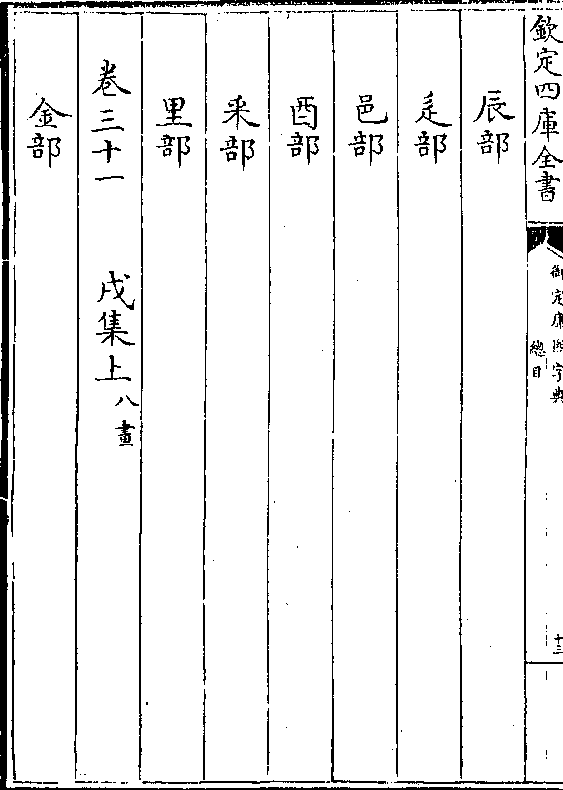 欽定四庫全書
御定康熙字典
總目
十三
辰部
辵部
邑部
酉部
釆部
里部
卷三十一 戌集上八畫
金部